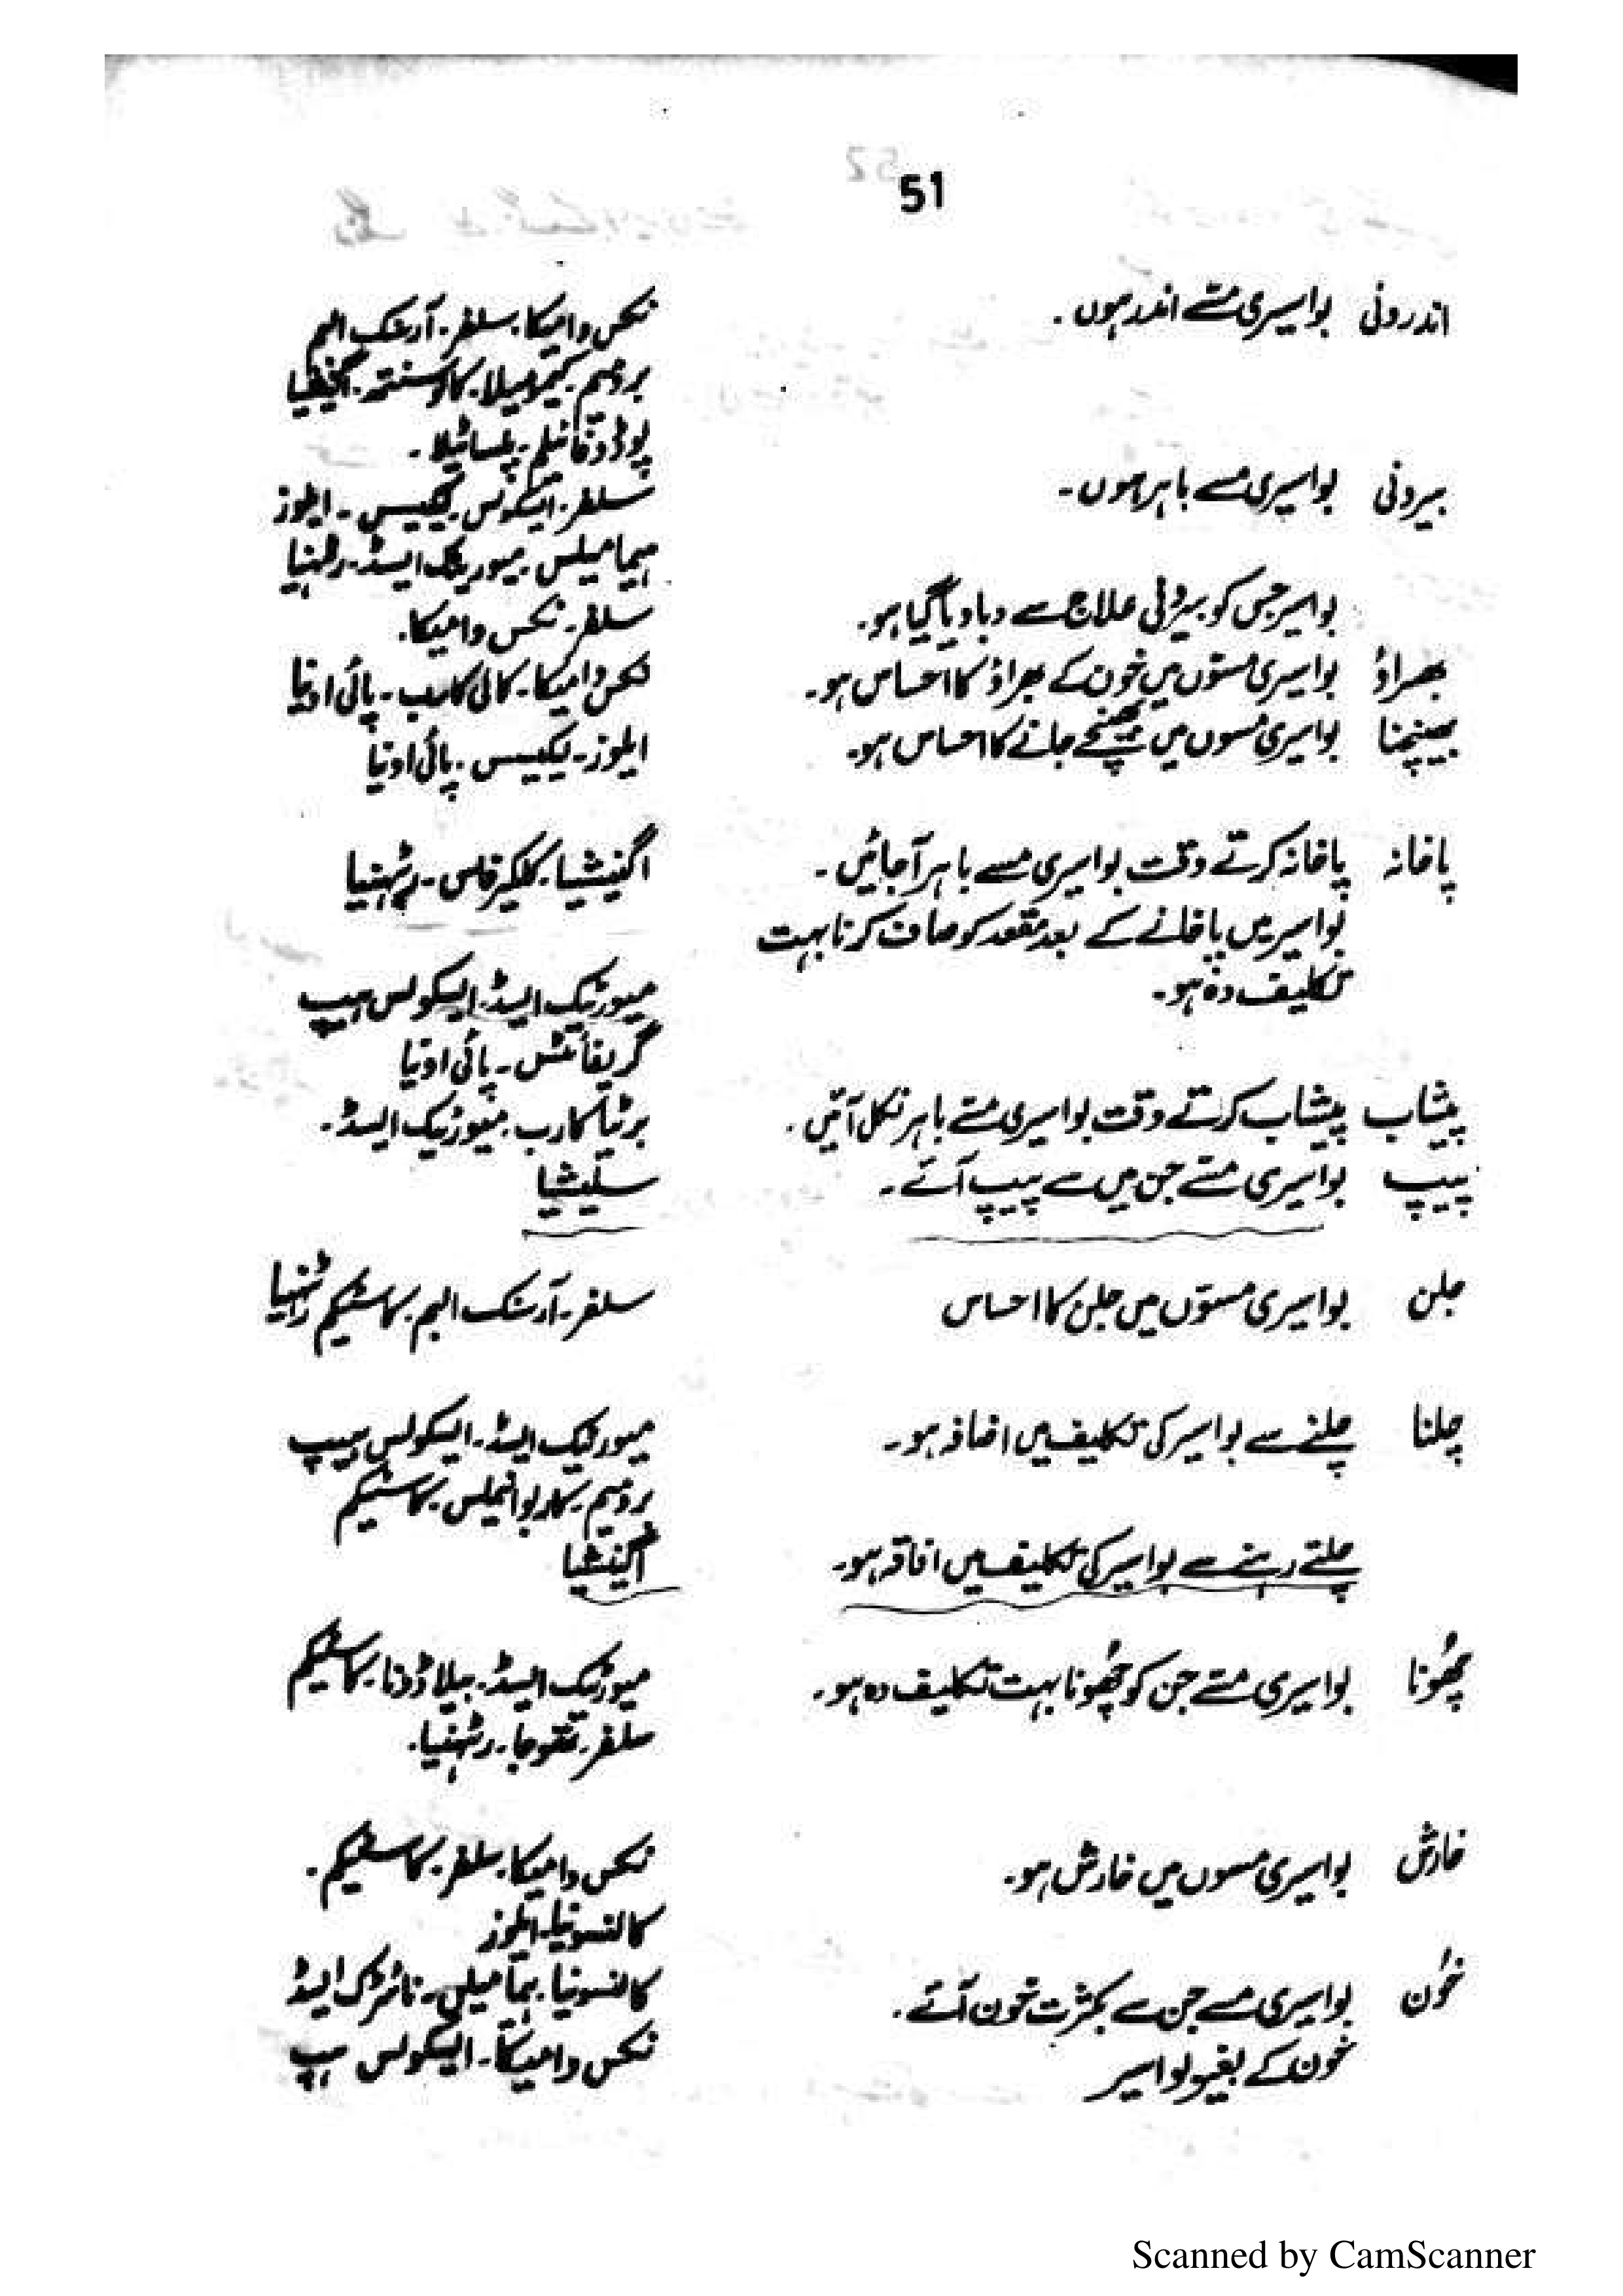 51
اندرونی بواسیری مسّے اندر ہوں۔ نکس وامیکا۔ سلفر۔ آرسنک البم
برومیم۔ کیمومیلا۔ کالوسنتھ۔
پوڈوفائیلم۔ پلساٹیلا۔
بیرونی بواسیری مسے باہر ہوں۔ سلفر۔ ایسکولس۔ لیکیسس۔ ایلوز
ہیمامیلس۔ میورٹیک ایسڈ۔ رٹہنیا
بواسیر جس کو بیرونی علاج سے دبا دیا گیا ہو۔ سلفر۔ نکس وامیکا۔
بھراؤ بواسیری مسّوں میں خون کے بھراؤ کا احساس ہو۔ نکس وامیکا۔ کالی کارب۔ پائی اونیا
بھینچنا بواسیری مسوں میں بھینچے جانے کا احساس ہو۔ ایلوز۔ لیکیسس۔ پائی اونیا
پاخانہ پاخانہ کرتے وقت بواسیری مسے باہر آجائیں۔ اگنیشیا۔ کلکیرفاس۔ رٹہنیا
بواسیر میں پاخانے کے بعد مقعد کو صاف کرنا بہت
تکلیف دہ ہو۔ میورٹیک ایسڈ۔ ایسکولس ہیپ
گریفائٹس۔ پائی اونیا
پیشاب پیشاب کرتے وقت بواسیری مسّے باہر نکل آئیں۔ برٹیا کارب۔ میورٹیک ایسڈ۔
پیپ بواسیری مسّے جن میں سے پیپ آئے۔ سلیشیا
جلن بواسیری مسوّں میں جلن کا احساس سلفر۔ آرسنک البم۔ کاسٹیکم رٹہنیا
چلنا چلنے سے بواسیر کی تکلیف میں اضافہ ہو۔ میورٹیک ایسڈ۔ ایسکولس ہیپ
برومیم۔ کاربوانیملس۔ کاسٹیکم
چلتے رہنے سے بواسیر کی تکلیف میں افاقہ ہو۔ اگنیشیا
چھُونا بواسیری مسّے جن کو چھُونا بہت تکلیف دہ ہو۔ میورٹیک ایسڈ۔ بیلاڈونا۔ کاسٹیکم
سلفر۔ تھوجا۔ رٹہنیا۔
خارش بواسیری مسوں میں خارش ہو۔ نکس وامیکا۔ سلفر۔ کاسٹیکم۔
کالنسونیا۔ ایلوز
خُون بواسیری مسے جن سے بکثرت خون آئے۔ کالنسونیا۔ ہیمامیلس۔ نائٹرک ایسڈ
خون کے بغیر بواسیر نکس وامیکا۔ ایسکولس ہپ
Scanned by CamScanner